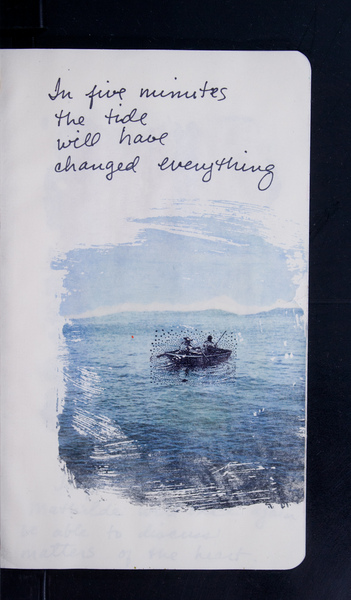 In five minutes
the tide
will have
changed everything
matters of the heart